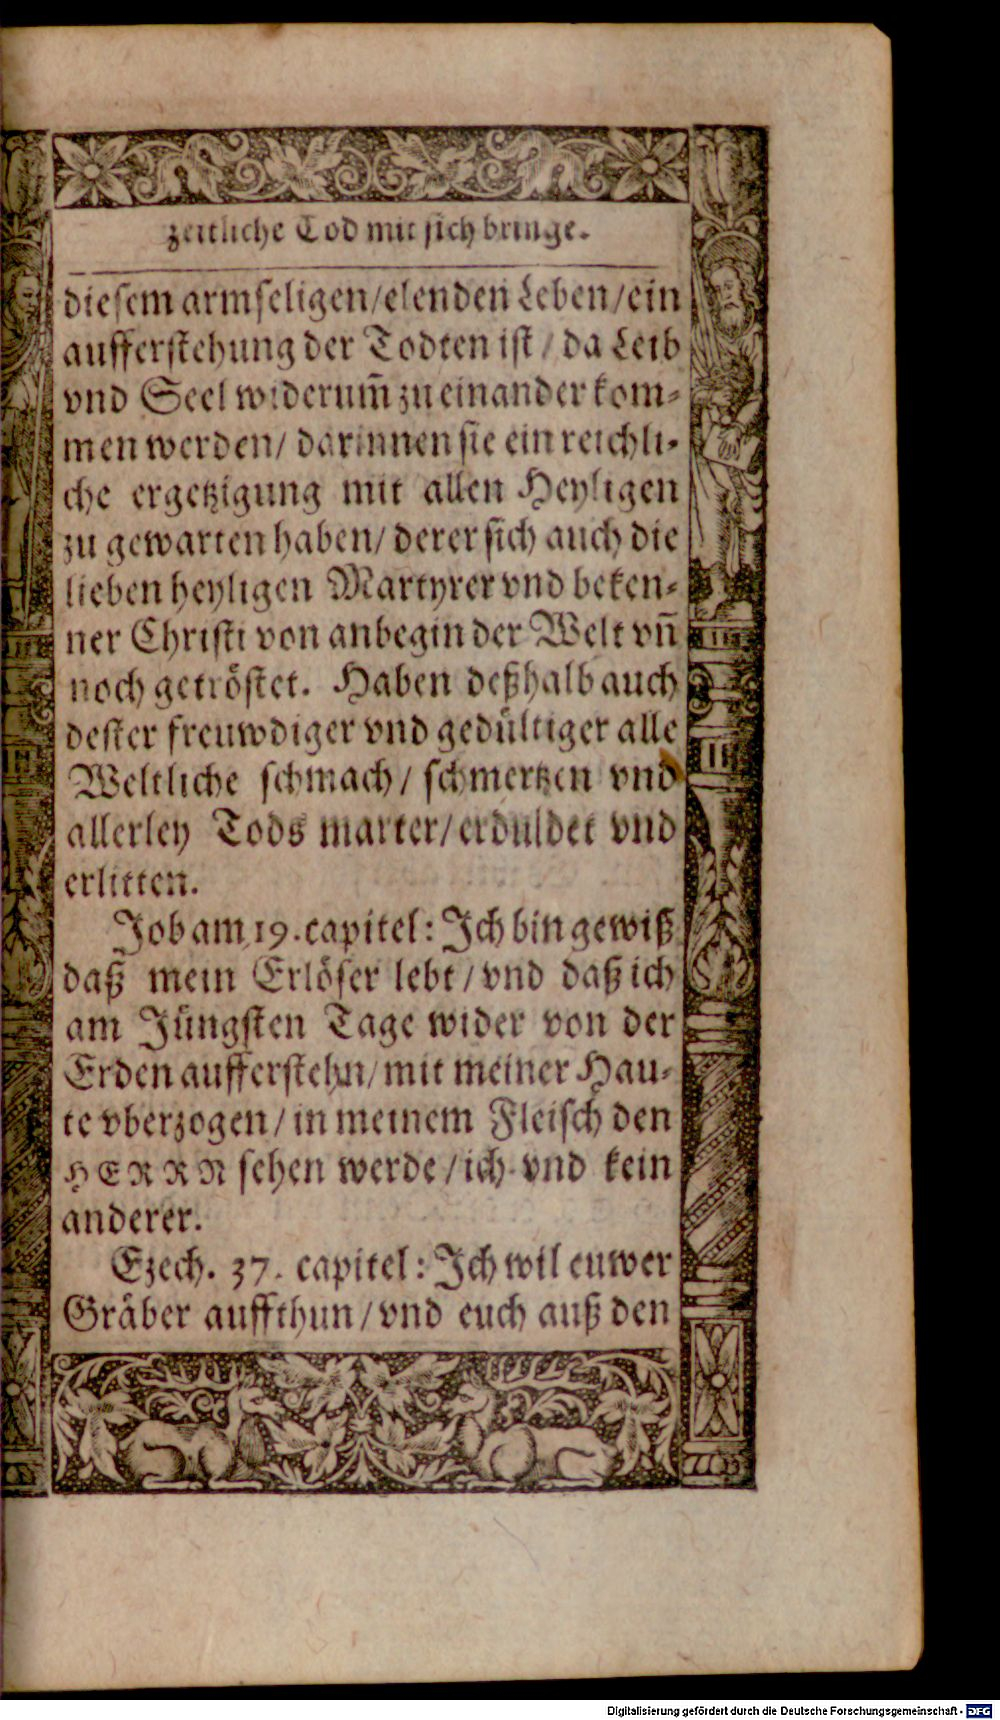 zeitliche Tod mit sich bringe.
diesem armseligen/elenden Leben/ein
aufferstehung der Todten ist/ da Leib
vnd Seel widerum̃ zu einander kom-
men werden/ darinnen sie ein reichli-
che ergetzigung mit allen Heyligen
zu gewarten haben/ derer sich auch die
lieben heyligen Martyrer vnd beken-
ner Christi von anbegin der Welt vñ
noch getröstet. Haben deßhalb auch
dester freuwdiger vnd gedültiger alle
Weltliche schmach/ schmertzen vnd
allerley Tods marter/erduldet vnd
erlitten.
Job am 19. capitel: Ich bin gewiß
daß mein Erlöser lebt/ vnd daß ich
am Jüngsten Tage wider von der
Erden aufferstehn/ mit meiner Hau-
te vberzogen/ in meinem Fleisch den
HERRN sehen werde/ich vnd kein
anderer.
Ezech. 37. capitel: Ich wil euwer
Gräber auffthun/ vnd euch auß den
Digitalisierung gefördert durch die Deutsche Forschungsgemeinschaft - DFG